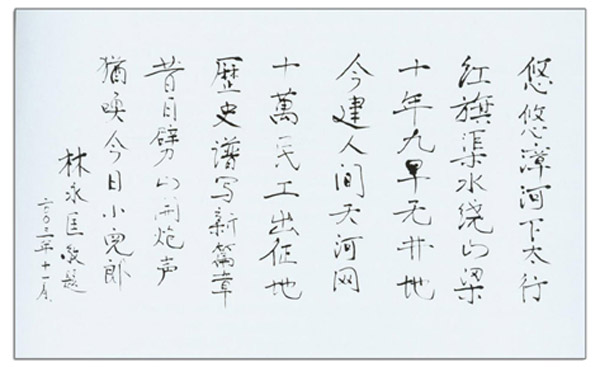 悠悠漳河下太行
红旗渠水绕山梁
十年九旱无井地
今建人间天河网
十萬民工出征地
歷史谱写新篇章
昔日劈山開炮声
猶唤今日小兒郎
林永匡敬题
二〇〇三年十一月